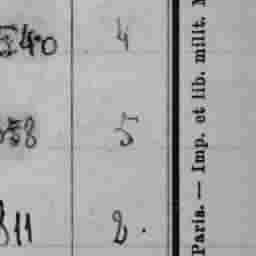 540 4
58 5
811 2.
Paris. — Imp. et lib. milit.